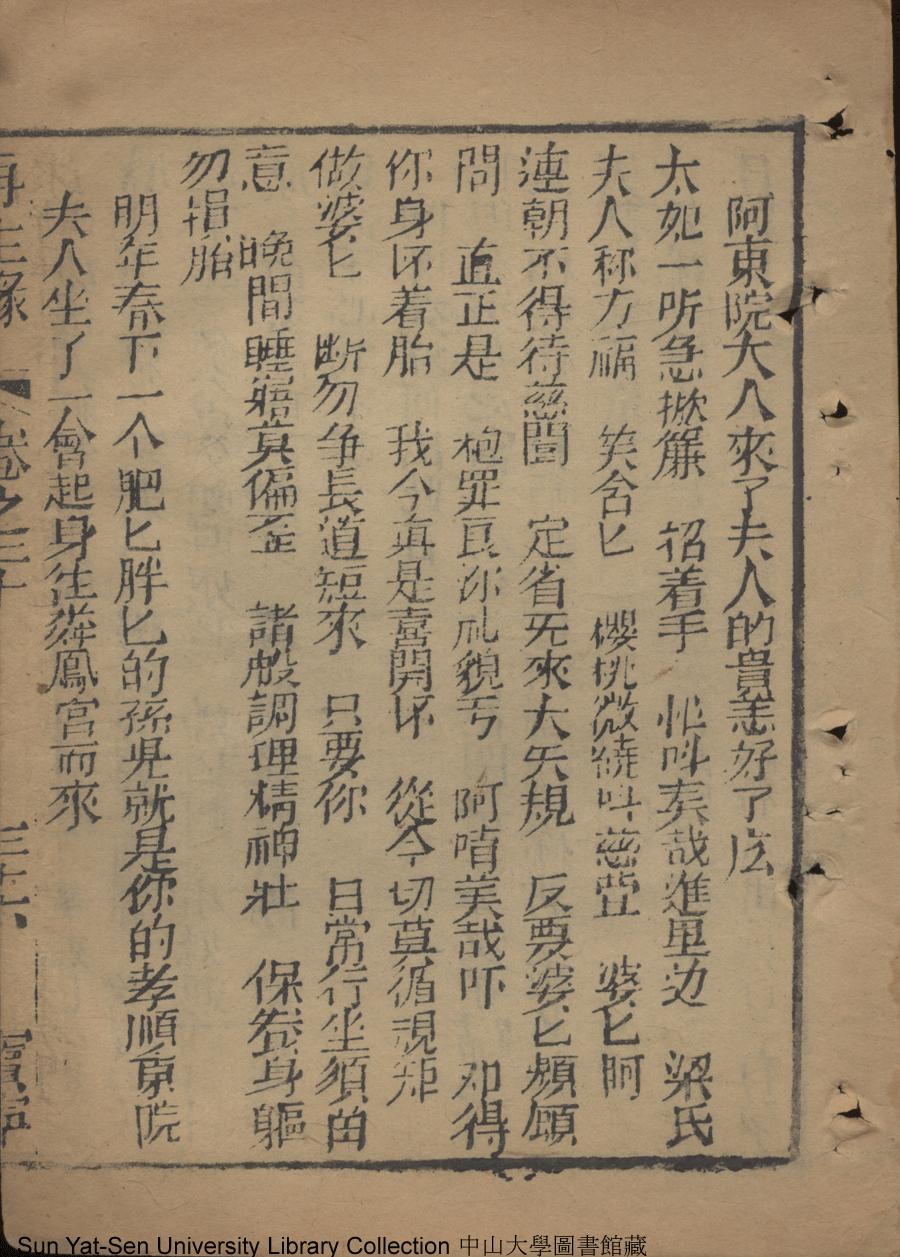 阿東院大人來了夫人的貴恙好了庅
太妃一听急掀簾 招着手 忙呌奚哉進里边 梁氏
夫人称万福 笑含匕 櫻桃微綻呌慈萱 婆匕呵
連朝不得待慈闈 定省旡來大失規 反要婆匕頻顧
問 直正是 抱罪良深礼貌亏 阿唷美哉吓 难得
你身怀着胎 我今真是喜開怀 從今切莫循規矩
做婆匕 断勿争長道短來 只要你 日常行坐須留
意 晚間睡寢莫偏歪 諸般調理精神壯 保養身軀
勿損胎
明年春下一个肥匕胖匕的孫児就是你的孝順東院
夫人坐了一會起身往粦鳳宮而來
再生緣 卷之三十 三十六 寶寧
Sun Yat-Sen University Library Collection 中山大學圖書館藏